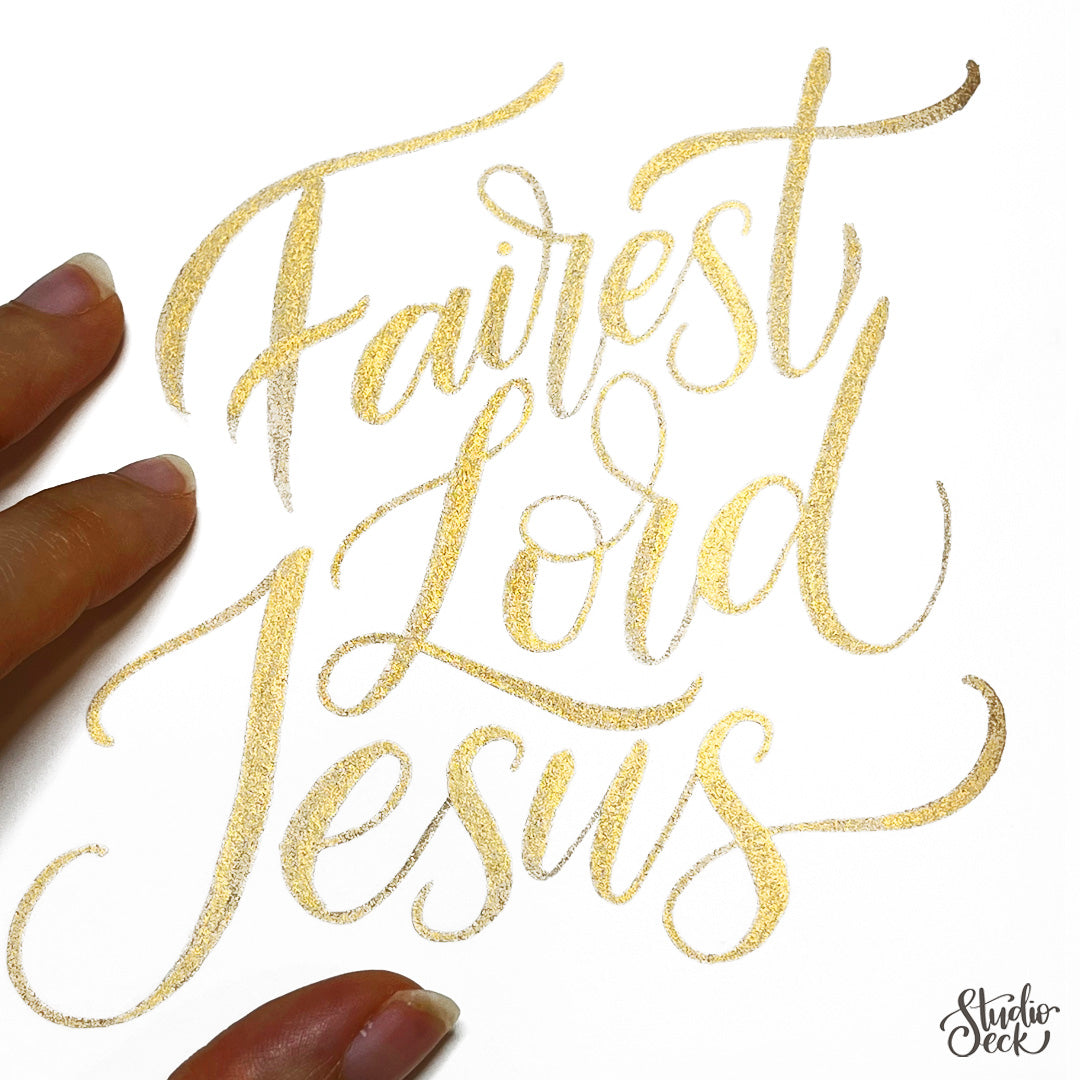 Fairest
Lord
Jesus
Studio
Seck